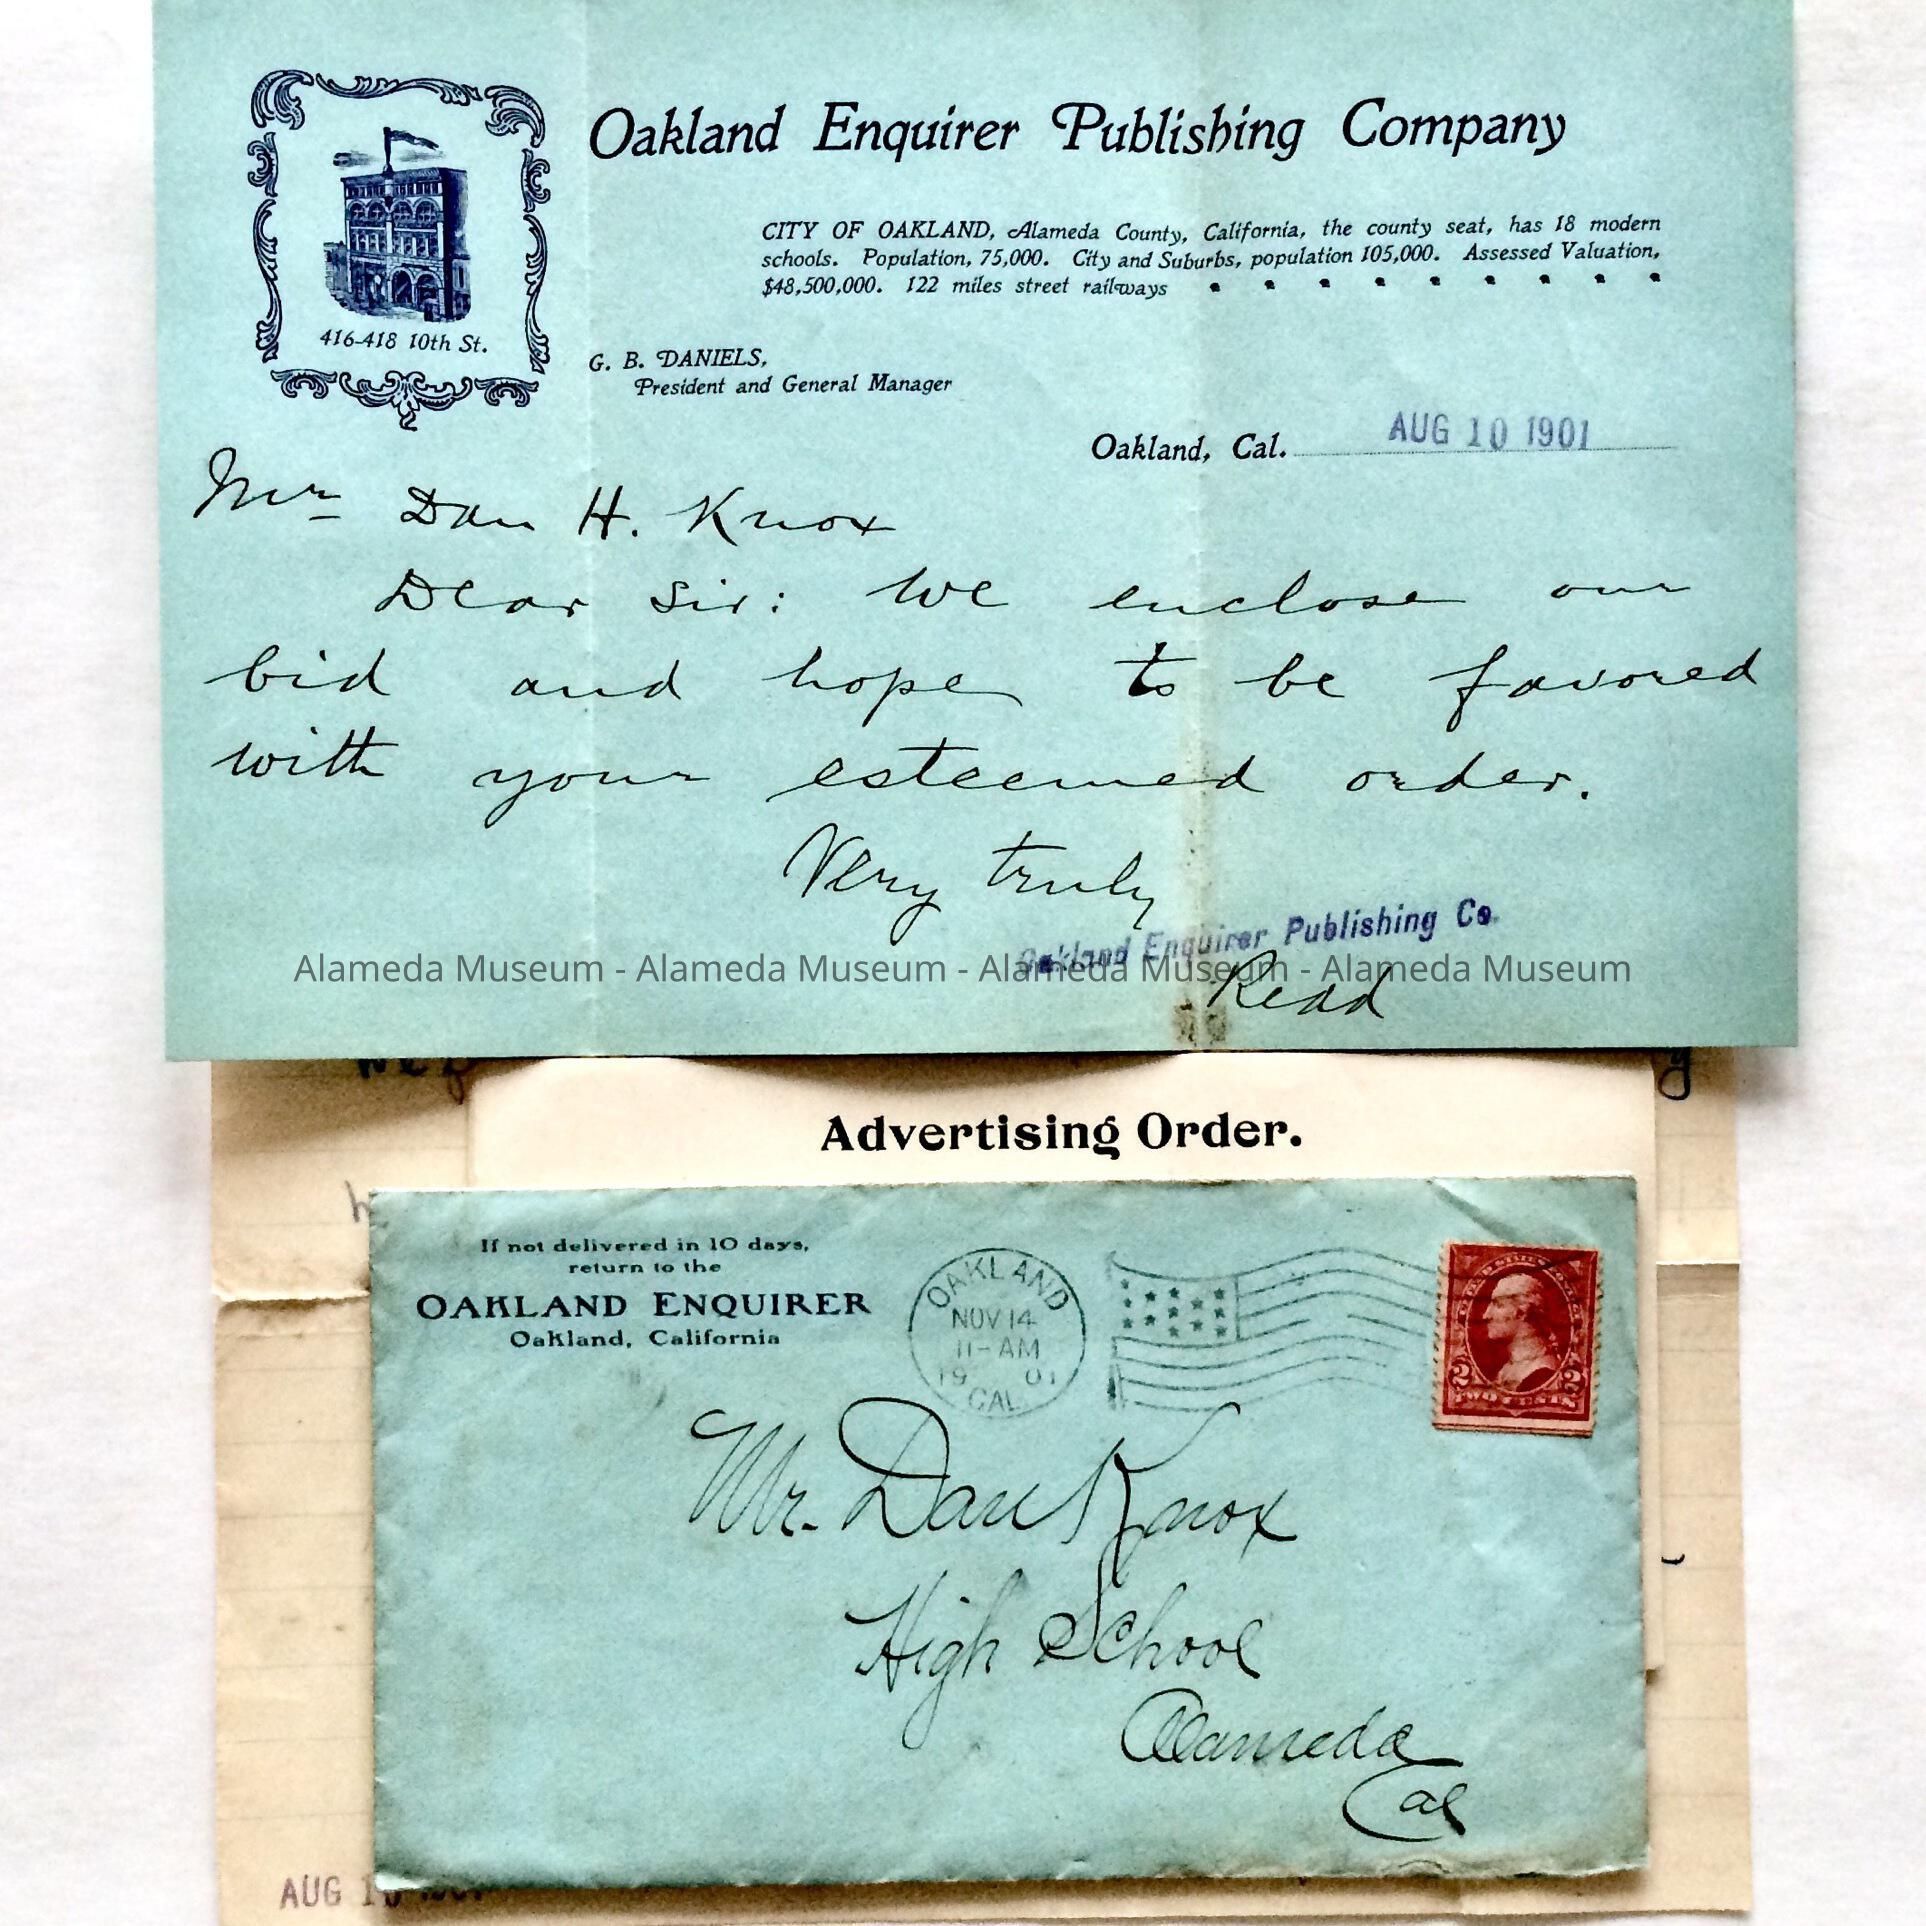 Oakland Enquirer Publishing Company
CITY OF OAKLAND, Alameda County, California, the county seat, has 18 modern
schools. Population, 75,000. City and Suburbs, population 105,000. Assessed Valuation,
$48,500,000. 122 miles street railways
416-418 10th St.
G. B. DANIELS,
President and General Manager
Oakland, Cal. AUG 10 1901
Mr Dan H. Knox
Dear Sir: We enclose our
bid and hope to be favored
with your esteemed order.
Very truly
Oakland Enquirer Publishing Co.
Alameda Museum - Alameda Museum - Alameda Museum - Alameda Museum
Read
Advertising Order.
If not delivered in 10 days,
return to the
OAKLAND ENQUIRER
Oakland, California
OAKLAND
NOV 14
11-AM
19 01
CAL.
2 2
TWO CENTS
Mr. Dan Knox
High School
Alameda
Cal
AUG 10